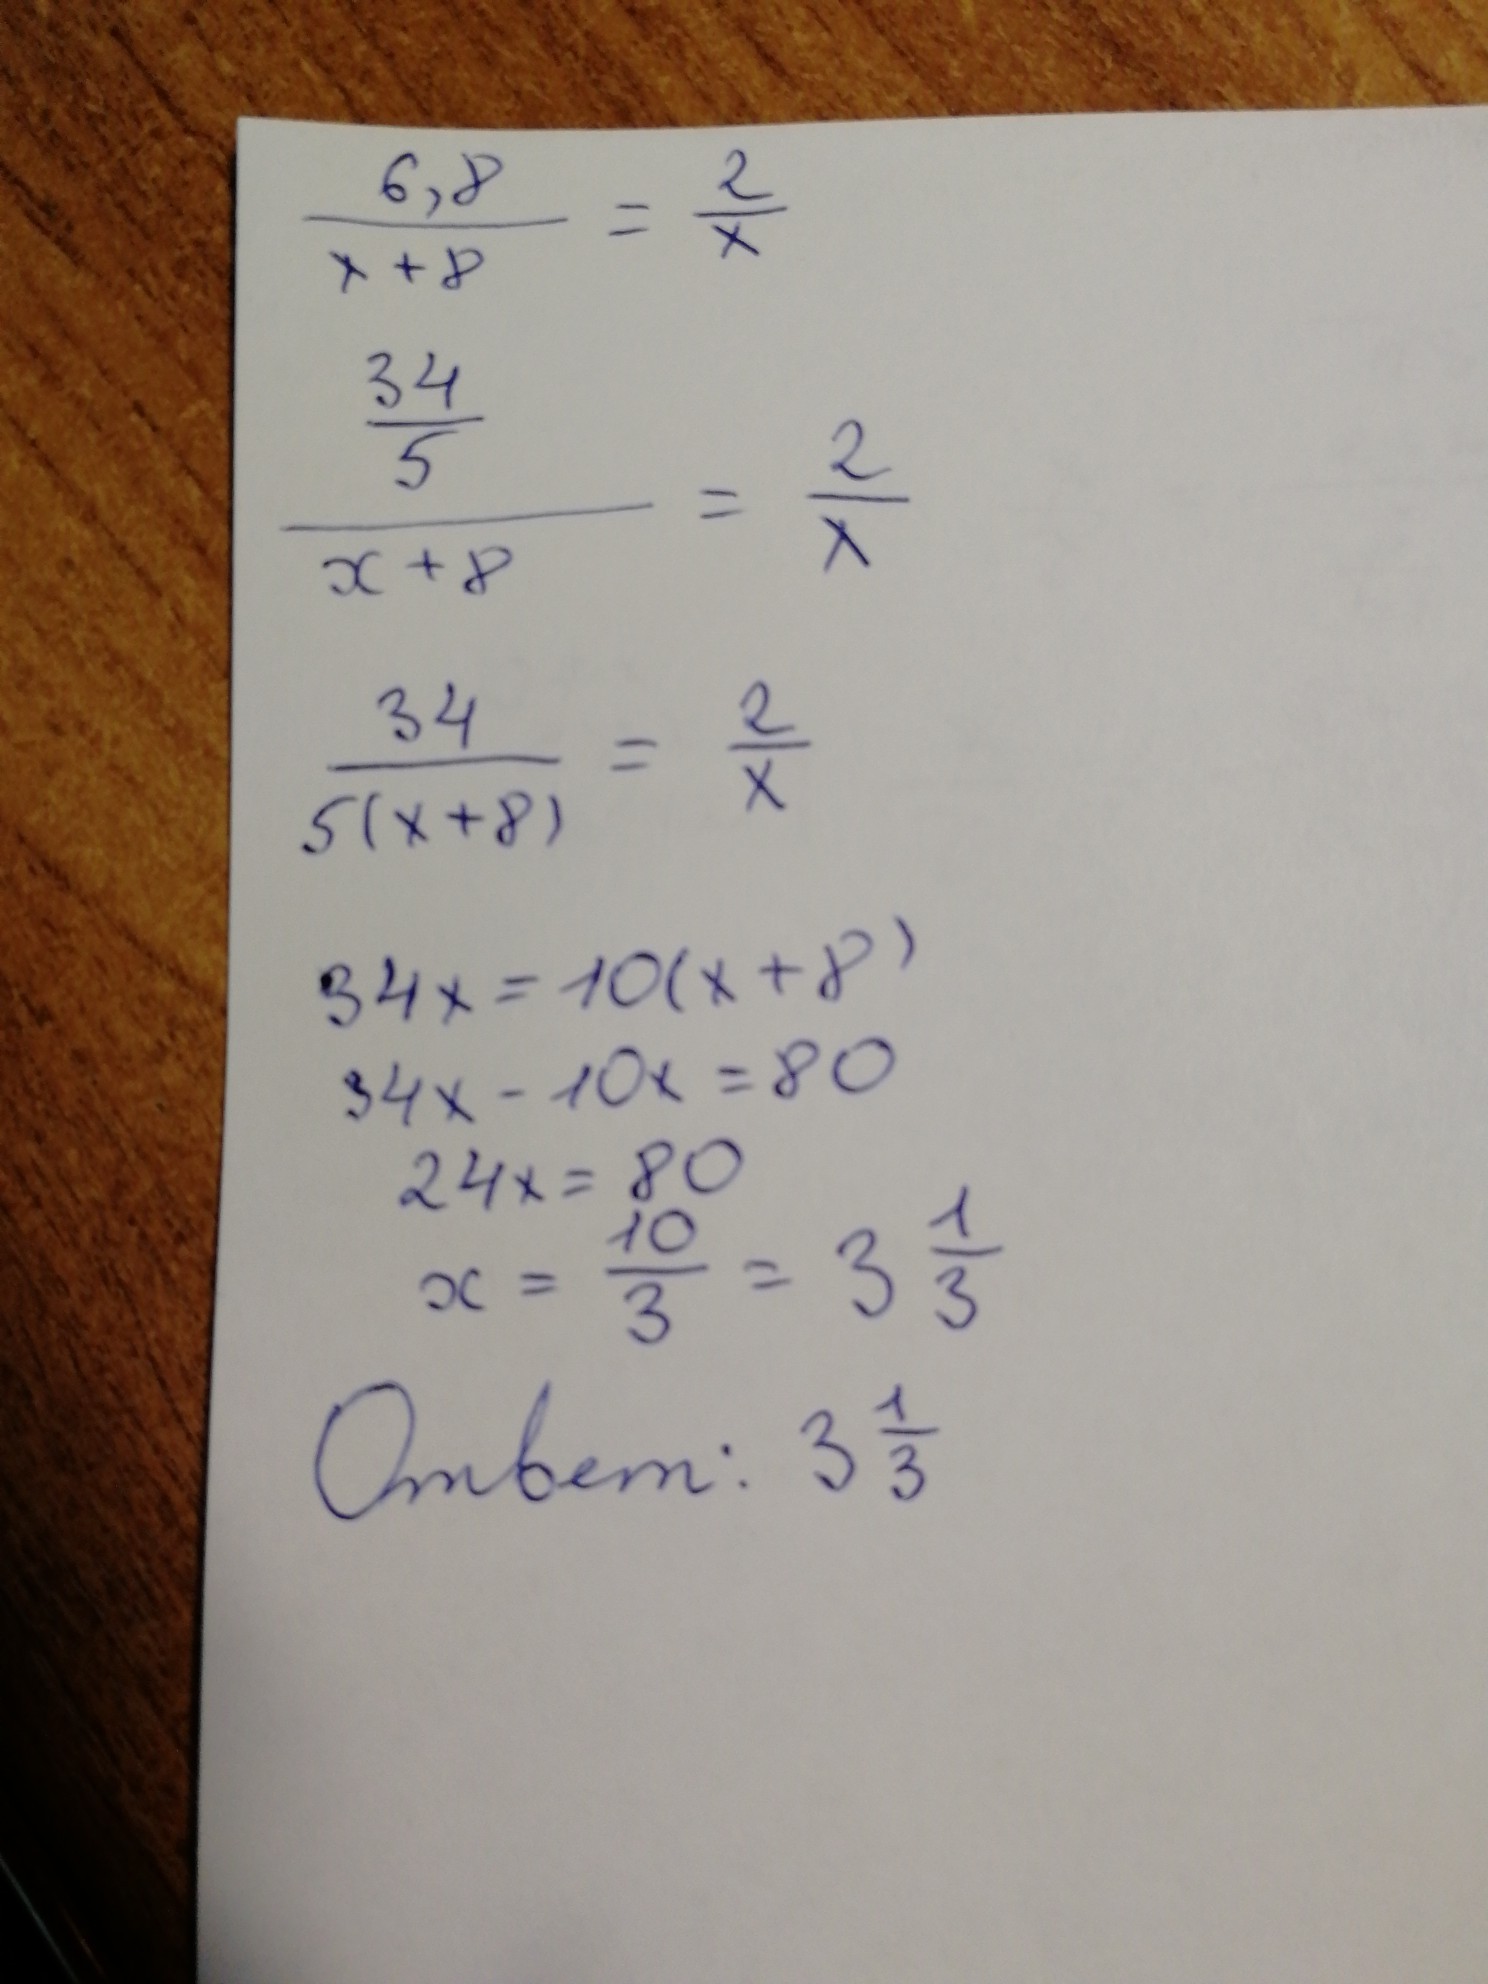 6,8/(x+8) = 2/x
(34/5)/(x+8) = 2/x
34/(5(x+8)) = 2/x
34x=10(x+8)
34x-10x=80
24x=80
x = 10/3 = 3 1/3
Ответ: 3 1/3